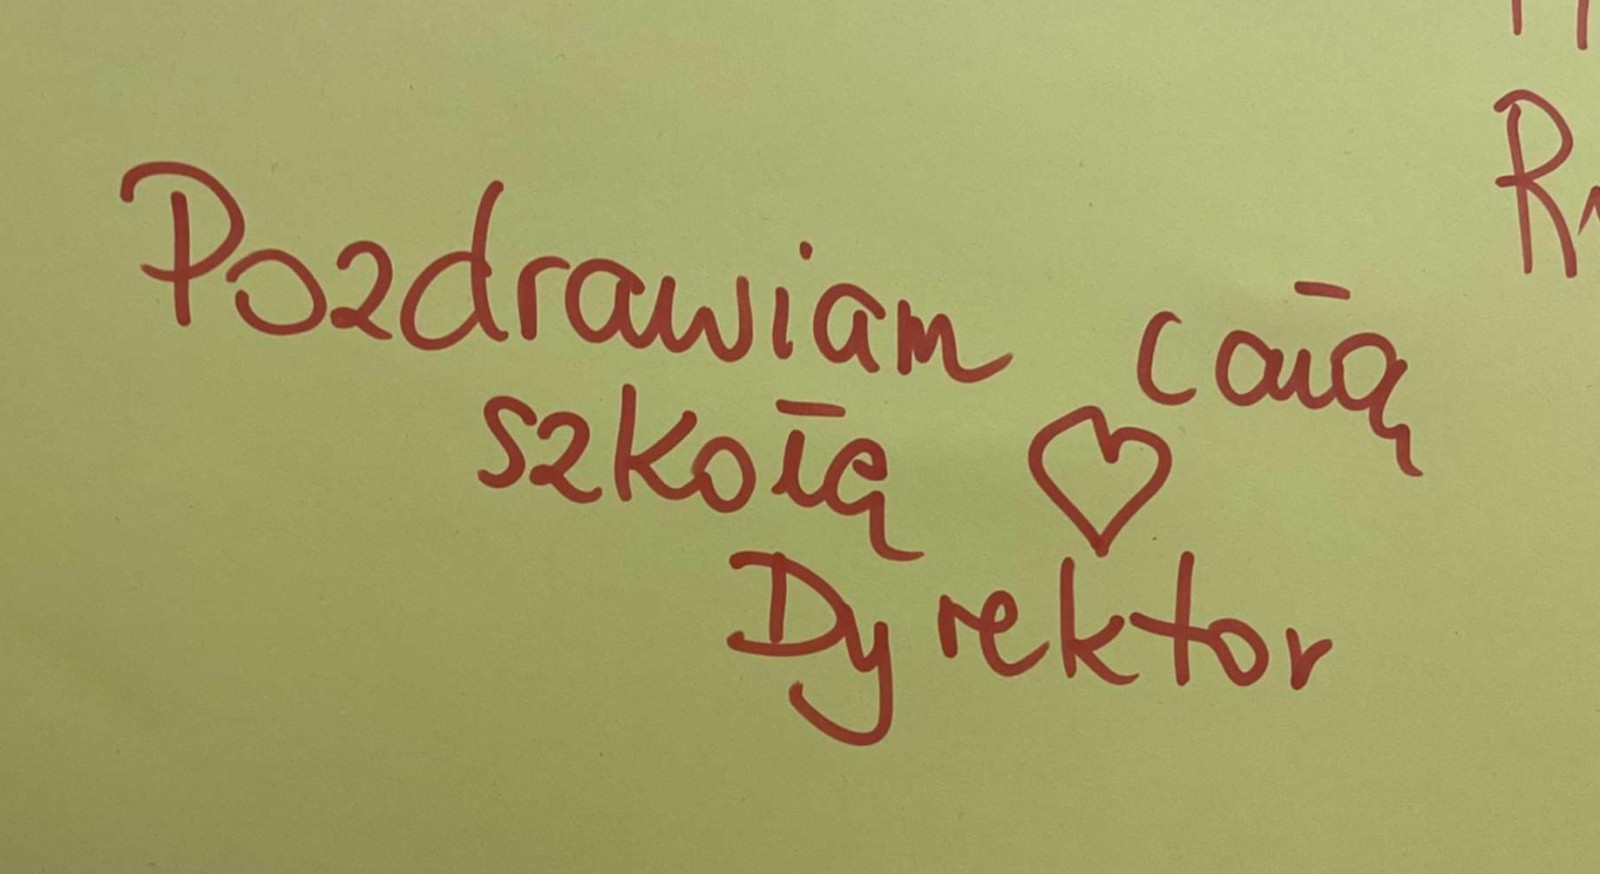 Pozdrawiam całą
szkołą ♡
Dyrektor